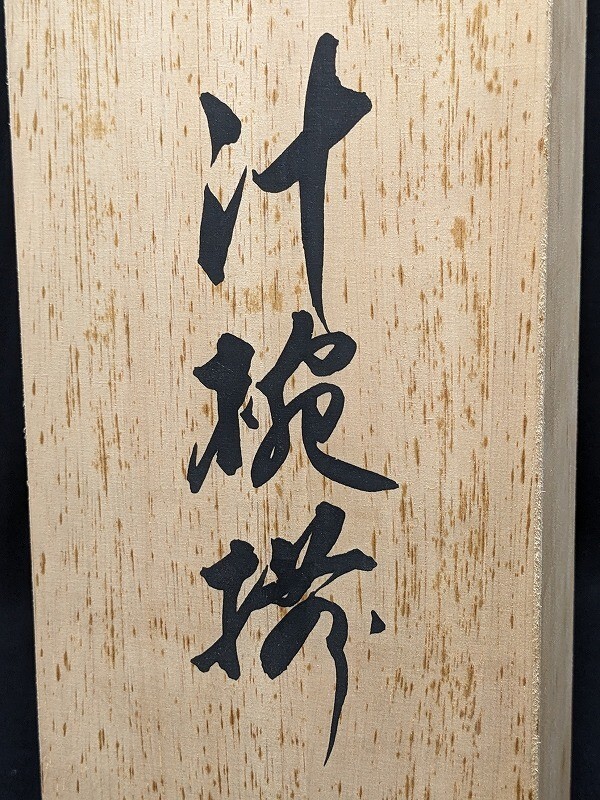 汁椀揃